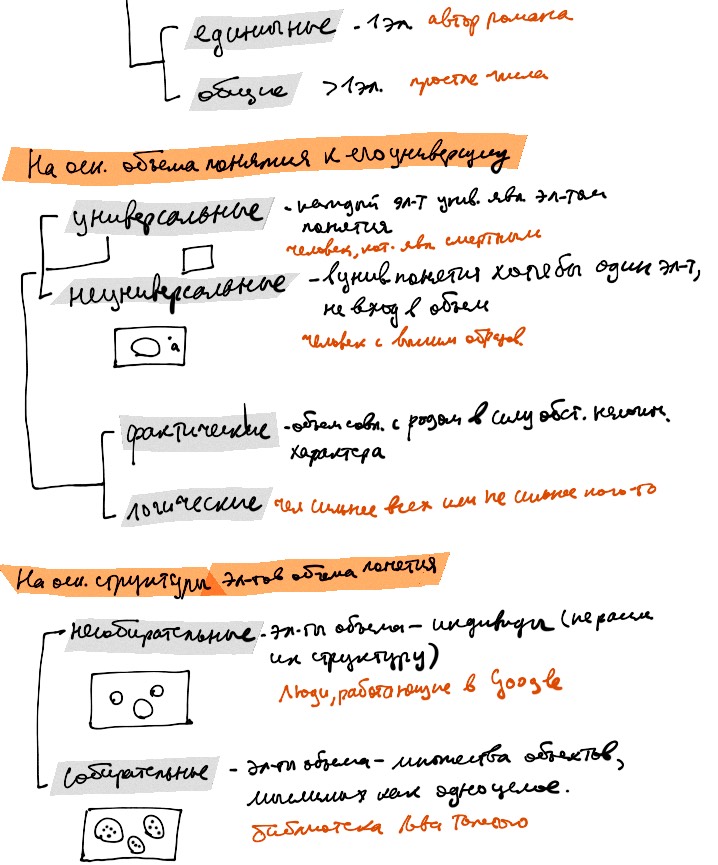 единичные - 1 эл. автор романа
общие >1 эл. простые числа
На осн. объема понятия к его универсуму
универсальные - каждый эл-т унив. явл эл-том
понятия
человек, кот. явл смертным
неуниверсальные - в унив понятия хотя бы один эл-т,
не вход в объем
a
человек с высшим образов
фактические - объем совп. с родом в силу обст. нелогич.
характера
логические чел сильнее всех или не сильнее кого-то
На осн. структуры эл-тов объема понятия
несобирательные - эл-ты объема - индивиды (не расм
их структуру)
Люди, работающие в Google
собирательные - эл-ты объема - множества объектов,
мыслимых как одно целое.
библиотека Льва Толстого